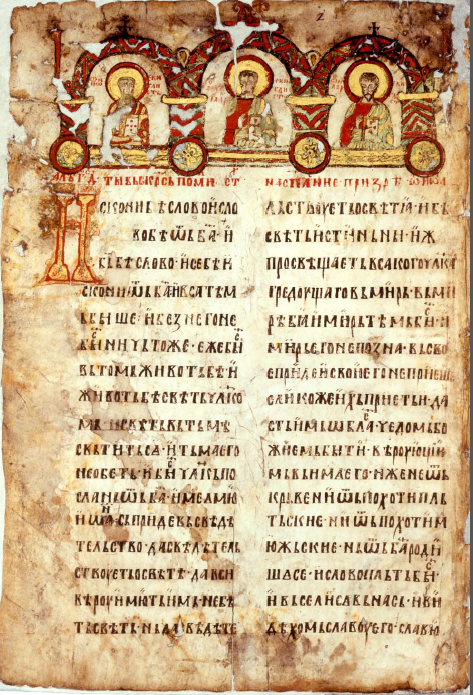 Искони бѣ слово и сло
во бѣ ѿ б҃а · и
б҃ь бѣ слово · и се бѣ и
скони ѿ б҃а и всѧ тѣм
ь бꙑше · и без него не
бꙑⷭ҇ ничьтоже · еже бꙑⷭ҇
вь томь животь бѣ · и
животь бѣ свѣть чл҃ко
мь · и свѣть вь тьмѣ
свьтить сѧ · и тьма его
не обеть · и бꙑⷭ҇ чл҃кь по
слань ѿ б҃а · име емꙋ
иѡа҃ · сь приде вь свѣдѣ
тельство · да свѣдѣтель
ствоуеть о свѣтѣ · да вси
вѣроу имоуть имь · не бѣ
ть свѣть · нь да свѣдѣте
льствоуеть о свѣтѣ · и бѣ
свѣть истиньни · иж
просвѣщаеть всакого чл҃ка
гредоущаго вь мирь · вь ми
рѣ бѣ и мирь тѣмь бꙑⷭ҇ · и
мирь его не позна · вь сво
ѣ приде и свои его не приеше
елико же ихь приеть и · да
сть имь ѡбла · чедомь бо
жиемь бꙑти · вѣроующи
мь вь име его · иже не ѿ
крьве ни ѿ похоти пль
тьские · ни ѿ похоти м
южьские · нь ѿ б҃а роди
ше се · и слово пльть бꙑⷭ҇ ·
и вьсели се вь нась · и ви
дѣхомь славоу его · славю